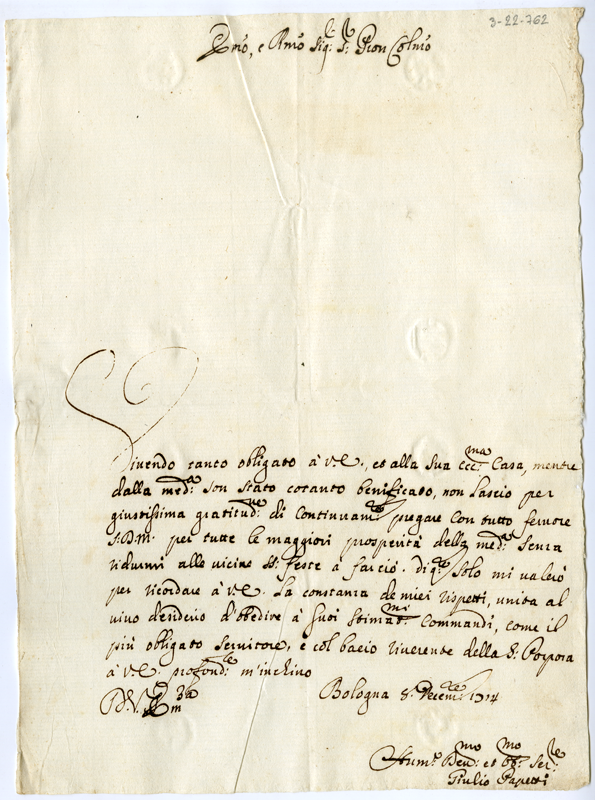 3-22-762
Emo, e Rmo Sig.r P.ron Colmo
Vivendo tanto obbligato à V.E., et alla Sua Ecc.ma Casa, mentre
dalla med.a son stato cotanto benificato, non lascio per
giustissima gratitud.ne di Continuam.te pregare Con tutto fervore
S.D.M. per tutte le maggiori prosperità della med.a Senza
ridurmi alle vicine SS. Feste à farciò. Di q.te Solo mi valerò
per ricordare à V.E. La constanza de miei rispetti, unita al
vivo desiderio d'obedire à suoi stimat.mi Commandi, come il
più obligato Servitore, e col bacio riverente della S. Porpora
à V.E. profond.te m'inchino
Di V. Em.za
Bologna 8. Decem.re 1714
Hum.mo Dev.mo et Obb. Ser.re
Giulio Papetti